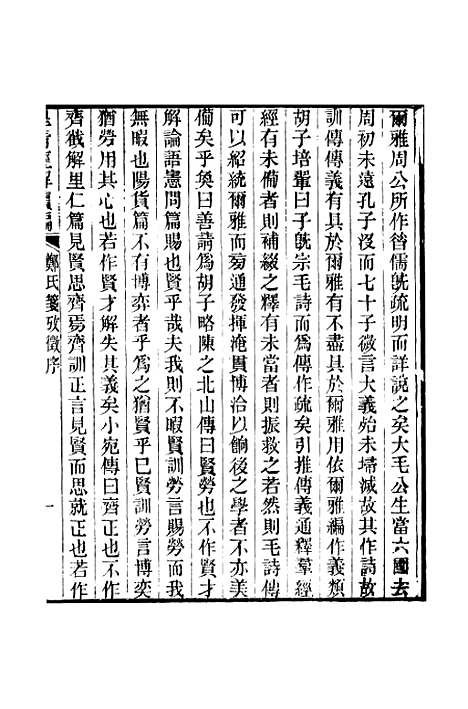 爾雅周公所作昝儒旣疏明而詳說之矣大毛公生當六國去
周初未遠孔子沒而七十子微言大義始未埽滅故其作詩故
訓傳傳義有具於爾雅有不盡具於爾雅用依爾雅編作義類
胡子培翬曰子旣宗毛詩而爲傳作疏矣引推傳義通釋羣經
經有未備者則補綴之釋有未當者則振救之若然則毛詩傳
可以紹統爾雅而菊通發揮淹貫博洽以餉後之學者不亦美
備矣乎奐曰善請爲胡子略陳之北山傳曰賢勞也不作賢才
解論語憲問篇賜也賢乎哉夫我則不暇賢訓勞言賜勞而我
無暇也陽貨篇不有博弈者乎爲之猶賢乎已賢訓勞言博奕
猶勞用其心也若作賢才解失其義矣小宛傳曰齊正也不作
齊截解里仁篇見賢思齊焉齊訓正言見賢而思就正也若作
皇清經解續編
鄭氏箋攷徵序
一